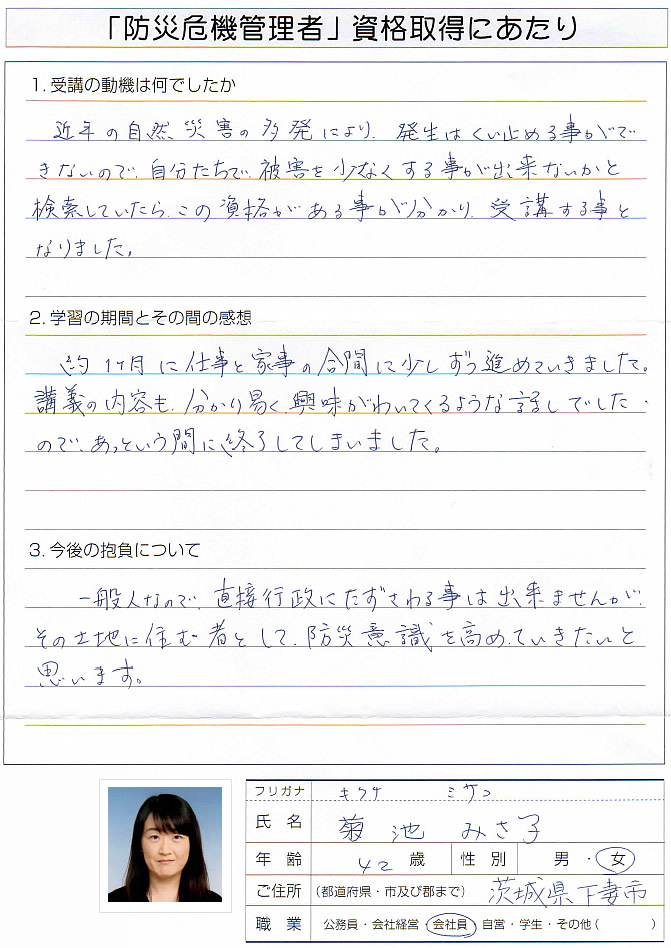 「防災危機管理者」資格取得にあたり
1. 受講の動機は何でしたか
近年の自然災害の多発により、発生はくい止める事がで
きないので、自分たちで、被害を少なくする事が出来ないかと
検索していたら、この資格がある事が分かり、受講する事と
なりました。
2. 学習の期間とその間の感想
約1ヶ月に仕事と家事の合間に少しずつ進めていきました。
講義の内容も、分かり易く、興味がわいてくるような話しでした
ので、あっという間に終了してしまいました。
3. 今後の抱負について
一般人なので、直接行政にたずさわる事は出来ませんが、
その土地に住む者として、防災意識を高めていきたいと
思います。
フリガナ キクチ ミサコ
氏名 菊池 みさ子
年齢 42歳 性別 男・女
ご住所 (都道府県・市及び郡まで) 茨城県下妻市
職業 公務員・会社経営・会社員・自営・学生・その他( )